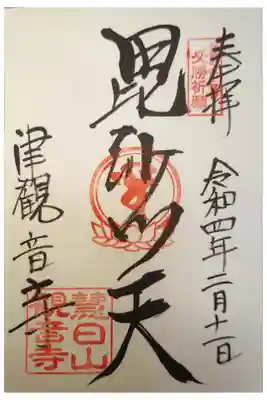 奉拝
必勝祈願
令和四年二月十一日
毘沙门天
津観音寺
慧日山
観音寺